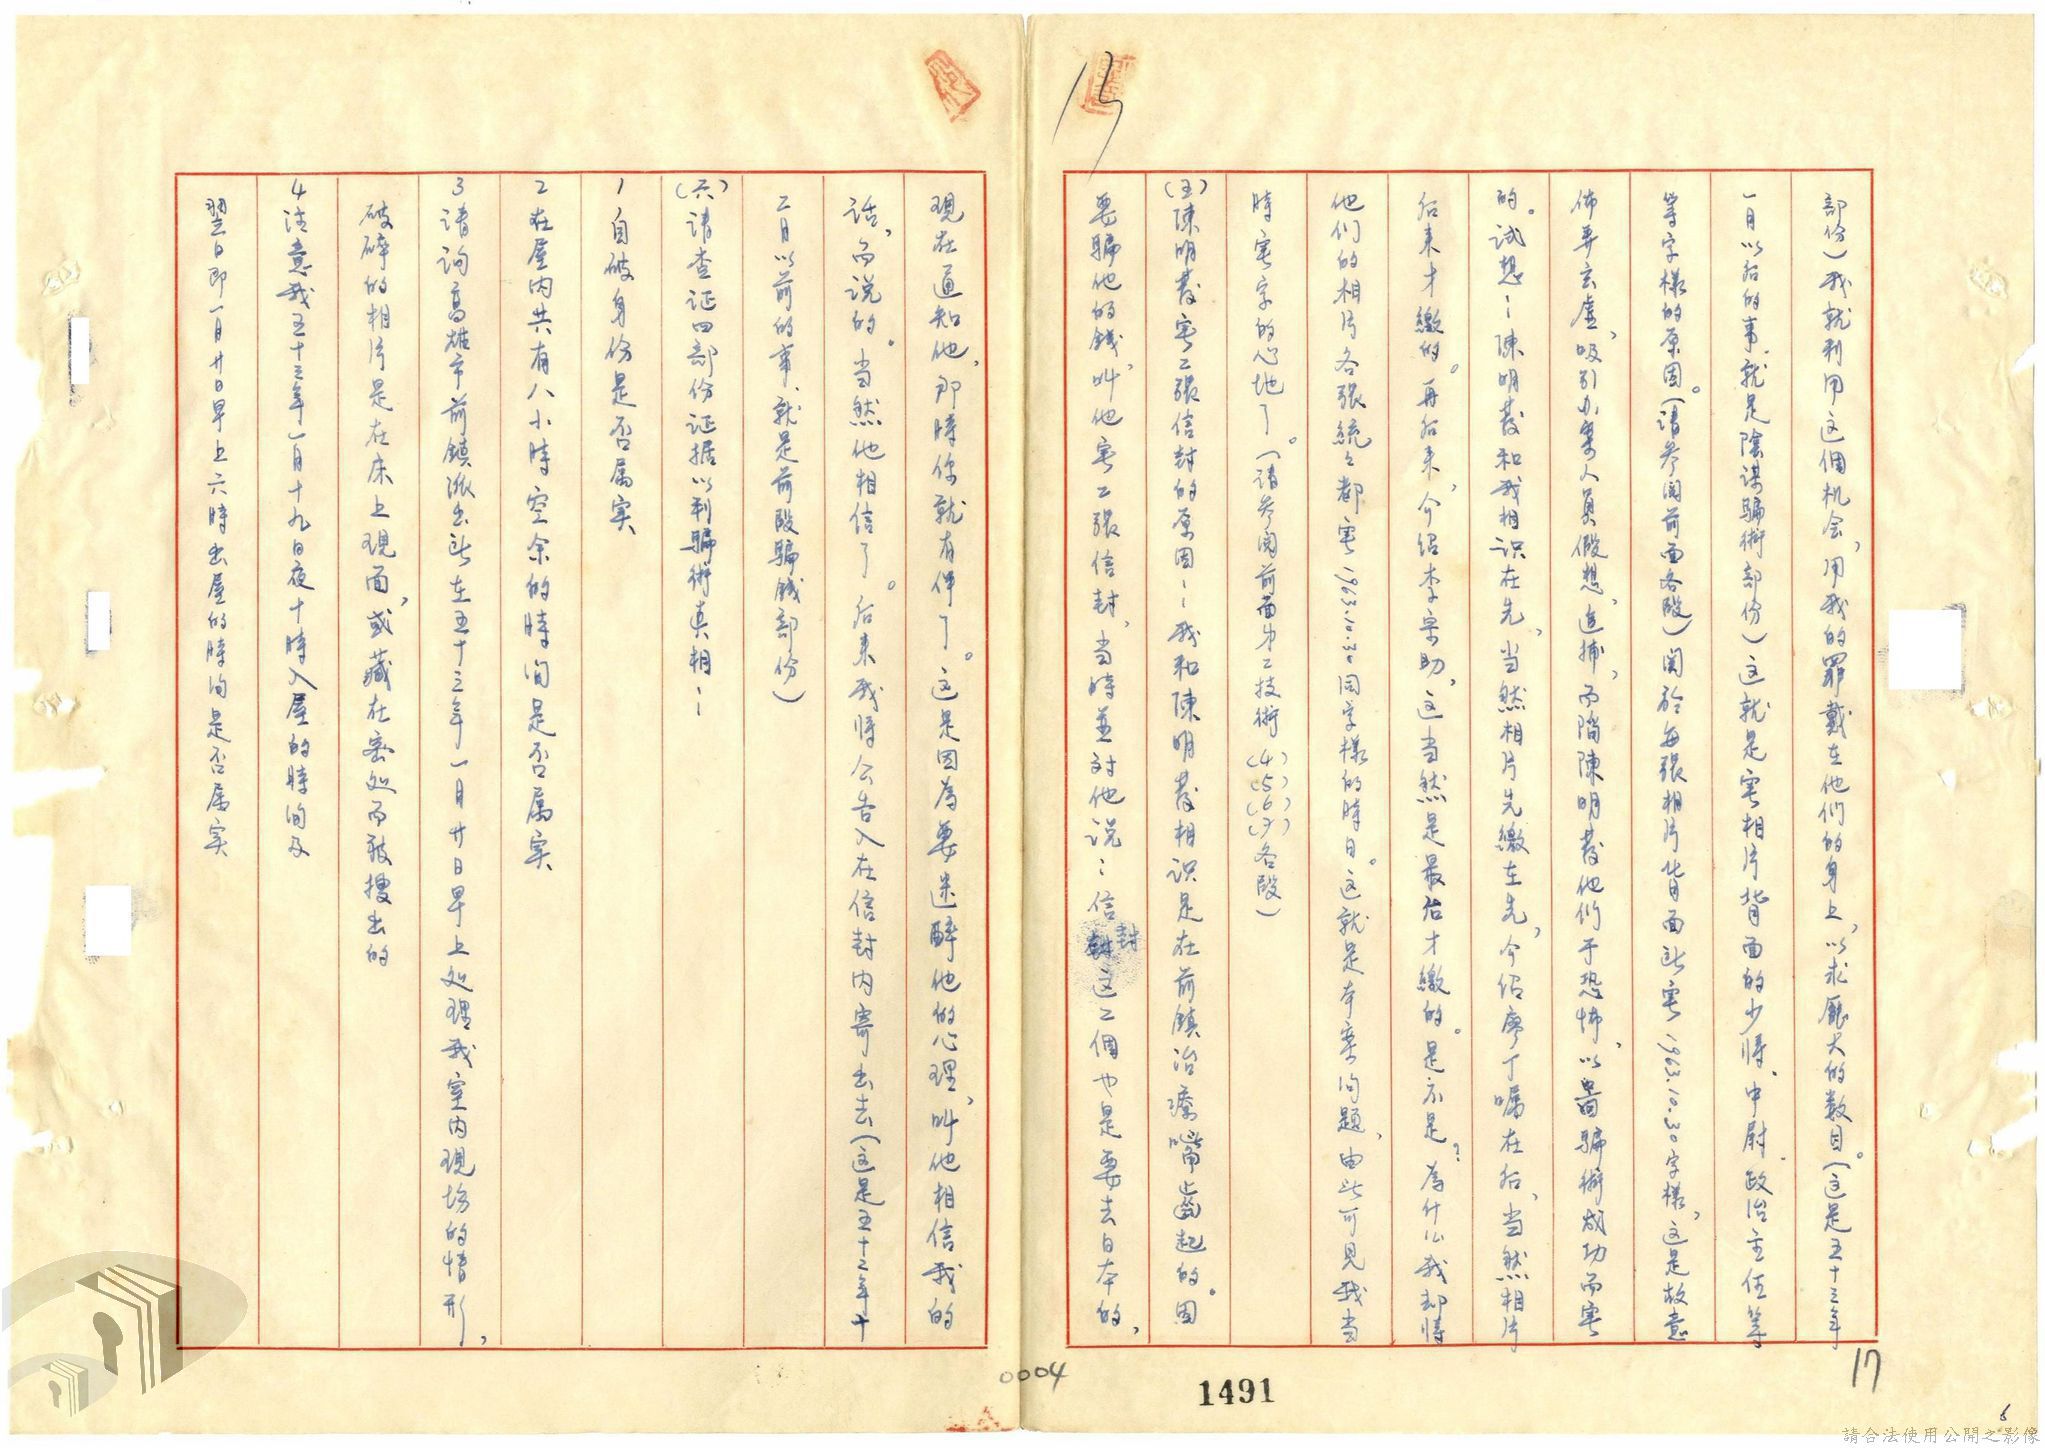 部份)我就利用这個机会,用我的罪戴在他們的身上,以求龐大的数目。(这是五十三年
一月以后的事,就是陰謀騙術部份)这就是寫相片背面的少將、中尉、政治主任等
等字樣的原因。(請参閱前面各段)関於每張相片背面
佈弄玄虛,吸引办案人員假想,追捕,而陷陳明發他們于恐怖,以啚騙術成功而寫
的。試想:陳明發和我相识在先,当然相片先繳在先,介绍廖丁嘱在后,当然相片
后来才繳的。再后来,介绍李宗助,这当然是最后才繳的。是不是?為什么我却將
他们的相片各張統々都寫
時寫字的心地了。(請参阅前面第二技術(4)(5)(6)(7)各段)
(五)陳明發寫二張信封的原因:我和陳明發相识是在前鎮治療嘴齒起的。因
要騙他的錢,叫他寫二張信封,当時並对他说:信封这二個也是要去日本的,
17
15
1491
0004
现在通知他,那時你就有伴了。这是因為要迷醉他的心理,叫他相信我的
话,而说的。当然他相信了。后来我將公告入在信封内寄出去(这是五十二年十
二月以前的事,就是前段騙錢部份)
(六)請查证四部份证据以判騙術真相:
1自破身份是否属实
2在屋内共有八小時空余的時间是否属实
3請询高雄市前鎮派出所在五十三年一月廿日早上処理我室内现场的情形,
破碎的相片是在床上现面,或藏在密処而被搜出的
4注意我五十三年一月十九日夜十時入屋的時间及
翌日即一月廿日早上六時出屋的時间是否属实
請合法使用公開之影像